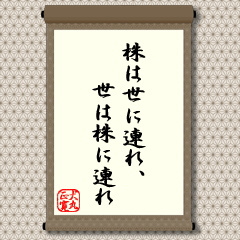 株は世に連れ、
世は株に連れ